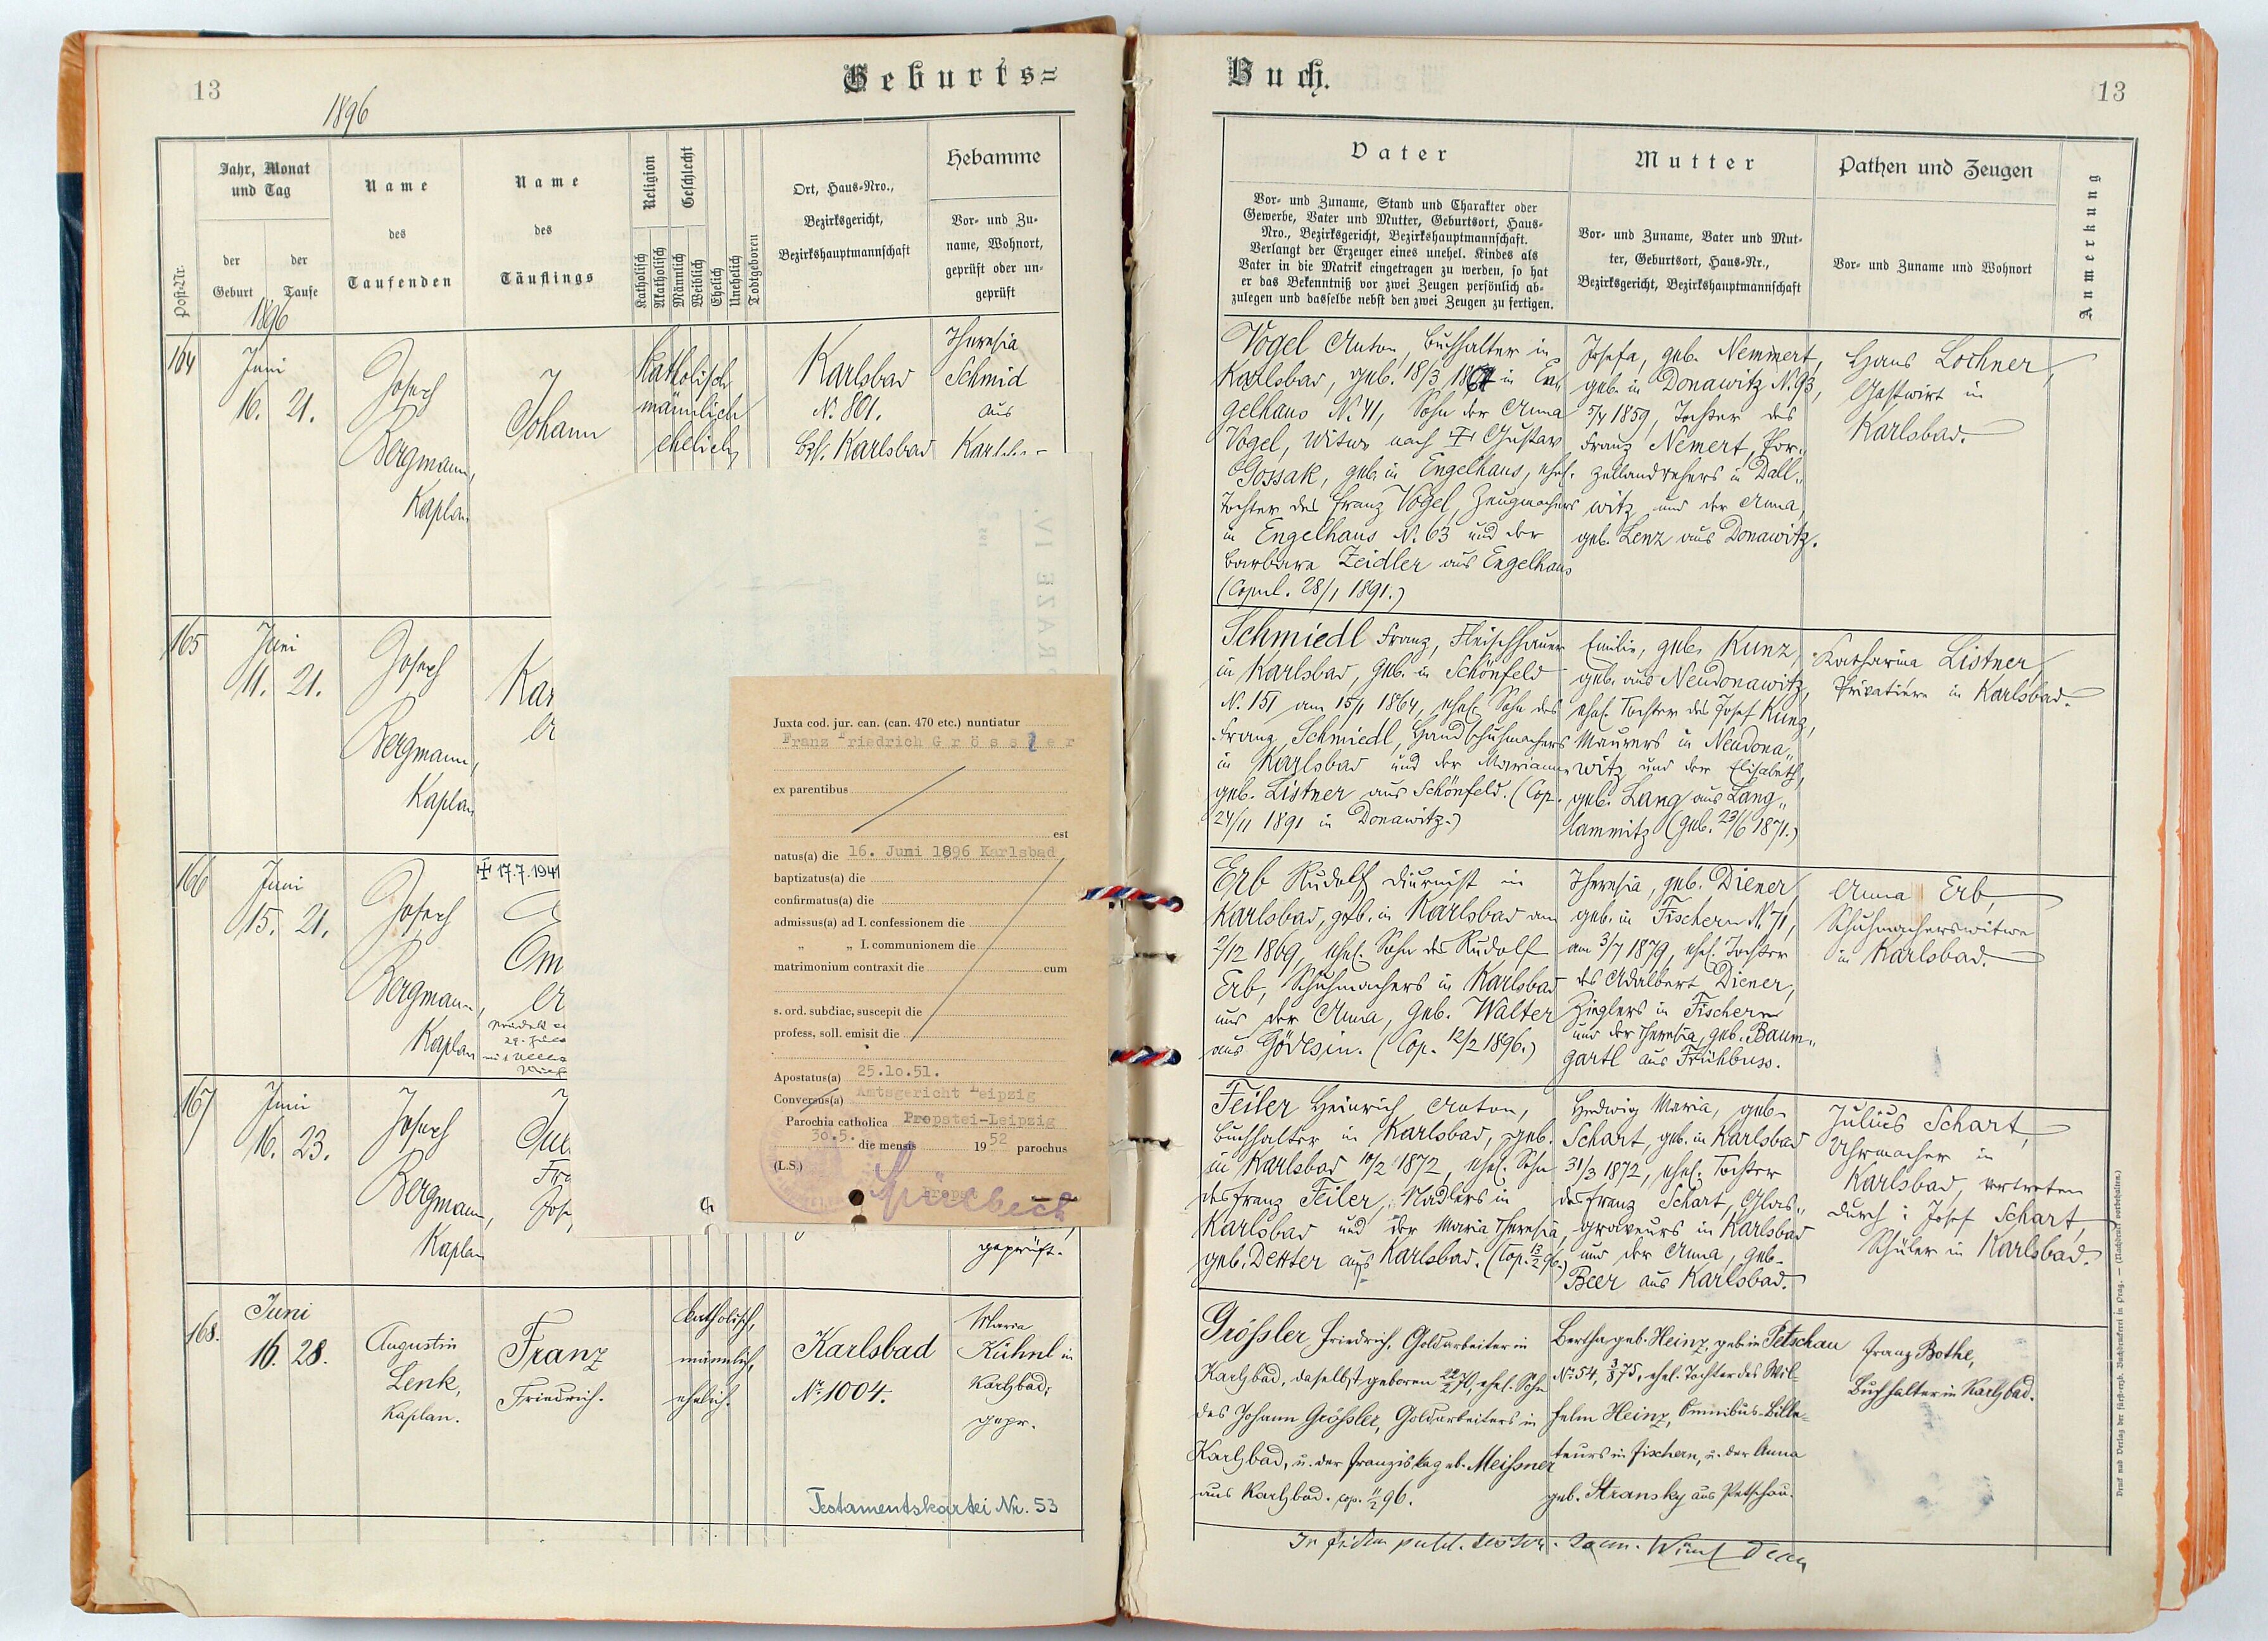 13
1896
Geburts=
Post-Nr.
Jahr, Monat
und Tag
der
Geburt
der
Taufe
1896
Name
des
Taufenden
Name
des
Täuflings
Religion
Katholisch
Akatholisch
Geschlecht
Männlich
Weiblich
Ehelich
Unehelich
Todtgeboren
Ort, Haus-Nro.,
Bezirksgericht,
Bezirkshauptmannschaft
Hebamme
Vor- und Zu-
name, Wohnort,
geprüft oder un-
geprüft
164
Juni
16. 21.
Josef
Bergmann,
Kaplan
Johann
Katholisch
männlich
ehelich
Karlsbad
N. 801.
Bzk. Karlsbad
Theresia
Schmid
aus
165
Juni
11. 21.
Josef
Bergmann,
Kaplan
Kar
166
Juni
15. 21.
Josef
Bergmann,
Kaplan
✝ 17.7.1941
Em
167
Juni
16. 23.
Josef
Bergmann,
Kaplan
Jul
Fra
Jos,
geprüft.
168.
Juni
16. 28.
Augustin
Lenk,
Kaplan.
Franz
Friedrich.
katholisch,
männlich,
ehelich.
Karlsbad
No 1004.
Maria
Kühnl in
Karlsbad,
gepr.
Testamentskartei Nr. 53
Juxta cod. jur. can. (can. 470 etc.) nuntiatur
Franz Friedrich Grössler
ex parentibus
est
natus(a) die 16. Juni 1896 Karlsbad
baptizatus(a) die
confirmatus(a) die
admissus(a) ad I. confessionem die
„ „ I. communionem die
matrimonium contraxit die cum
s. ord. subdiac, suscepit die
profess, soll. emisit die
Apostatus(a) 25.10.51.
Conversus(a) Amtsgericht Leipzig
Parochia catholica Propstei-Leipzig
30.5. die mensis 1952 parochus
(L.S.)
Propst
Buch.
13
Vater
Vor- und Zuname, Stand und Charakter oder
Gewerbe, Vater und Mutter, Geburtsort, Haus-
Nro., Bezirksgericht, Bezirkshauptmannschaft.
Verlangt der Erzeuger eines unehel. Kindes als
Vater in die Matrik eingetragen zu werden, so hat
er das Bekenntniß vor zwei Zeugen persönlich ab-
zulegen und dasselbe nebst den zwei Zeugen zu fertigen.
Mutter
Vor- und Zuname, Vater und Mut-
ter, Geburtsort, Haus-Nr.,
Bezirksgericht, Bezirkshauptmannschaft
Pathen und Zeugen
Vor- und Zuname und Wohnort
Anmerkung
Vogel Anton, Buchhalter in
Karlsbad, geb. 18/3 1867 in En-
gelhaus N. 41, Sohn der Anna
Vogel, Witwe nach ✝ Gustav
Gossak, geb. in Engelhaus, ehel.
Tochter des Franz Vogel, Zeugmachers
in Engelhaus N. 63 und der
Barbara Zeidler aus Engelhaus
(Copul. 28/1 1891.)
Josefa, geb. Nemmert,
geb. in Donawitz N. 93,
5/4 1859, Tochter des
Franz Nemert, Por-
zellandrehers in Dall-
witz und der Anna,
geb. Lenz aus Donawitz.
Hans Lochner,
Gastwirt in
Karlsbad.
Schmiedl Franz, Fleischhauer
in Karlsbad, geb. in Schönfeld
N. 151 am 15/1 1864, ehel. Sohn des
Franz Schmiedl, Handschuhmachers
in Karlsbad und der Marianna
geb. Listner aus Schönfeld. (Cop.
24/11 1891 in Donawitz.)
Emilie, geb. Kunz,
geb. aus Neudonawitz,
ehel. Tochter des Josef Kunz,
Maurers in Neudona-
witz und der Elisabeth,
geb. Lang aus Lang-
lammitz (geb. 23/6 1871.)
Katharina Listner,
Private in Karlsbad.
Erb Rudolf Diurnist in
Karlsbad, geb. in Karlsbad am
2/12 1869, ehel. Sohn des Rudolf
Erb, Schuhmachers in Karlsbad
und der Anna, geb. Walter
aus Gödesin. (Cop. 12/2 1896.)
Theresia, geb. Diener,
geb. in Fischern N. 71,
am 3/7 1879, ehel. Tochter
des Adalbert Diener,
Zieglers in Fischern
und der Theresia, geb. Baum-
gartl aus Frühbuss.
Anna Erb,
Schuhmacherswitwe
in Karlsbad.
Feiler Heinrich Anton,
Buchhalter in Karlsbad, geb.
in Karlsbad 10/2 1872, ehel. Sohn
des Franz Feiler, Nadlers in
Karlsbad und der Maria Theresia,
geb. Detter aus Karlsbad. (Cop. 13/2 96.)
Hedwig Maria, geb.
Schart, geb. in Karlsbad
31/3 1872, ehel. Tochter
des Franz Schart, Glas-
graveurs in Karlsbad
und der Anna, geb.
Beer aus Karlsbad.
Julius Schart,
Uhrmacher in
Karlsbad, vertreten
durch: Josef Schart,
Schüler in Karlsbad.
Grössler Friedrich, Goldarbeiter in
Karlsbad, daselbst geboren 22/2 70, ehel. Sohn
des Johann Grössler, Goldarbeiters in
Karlsbad, u. der Franziska geb. Meissner
aus Karlsbad. cop. 11/2 96.
Bertha geb. Heinz, geb. in Petschau
No 54, 3/8 75, ehel. Tochter des Wil-
helm Heinz, Omnibus-Bille-
teurs in Fischern, u. der Anna
geb. Stransky aus Petschau.
Franz Bothe,
Buchhalter in Karlsbad.
Druck und Verlag der fürst-erzb. Buchdruckerei in Prag. — (Nachdruck vorbehalten.)